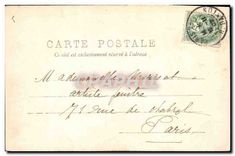 CARTE POSTALE
Ce côté est exclusivement réservé à l'adresse
Mademoiselle
artiste peintre
71 Rue de
Paris